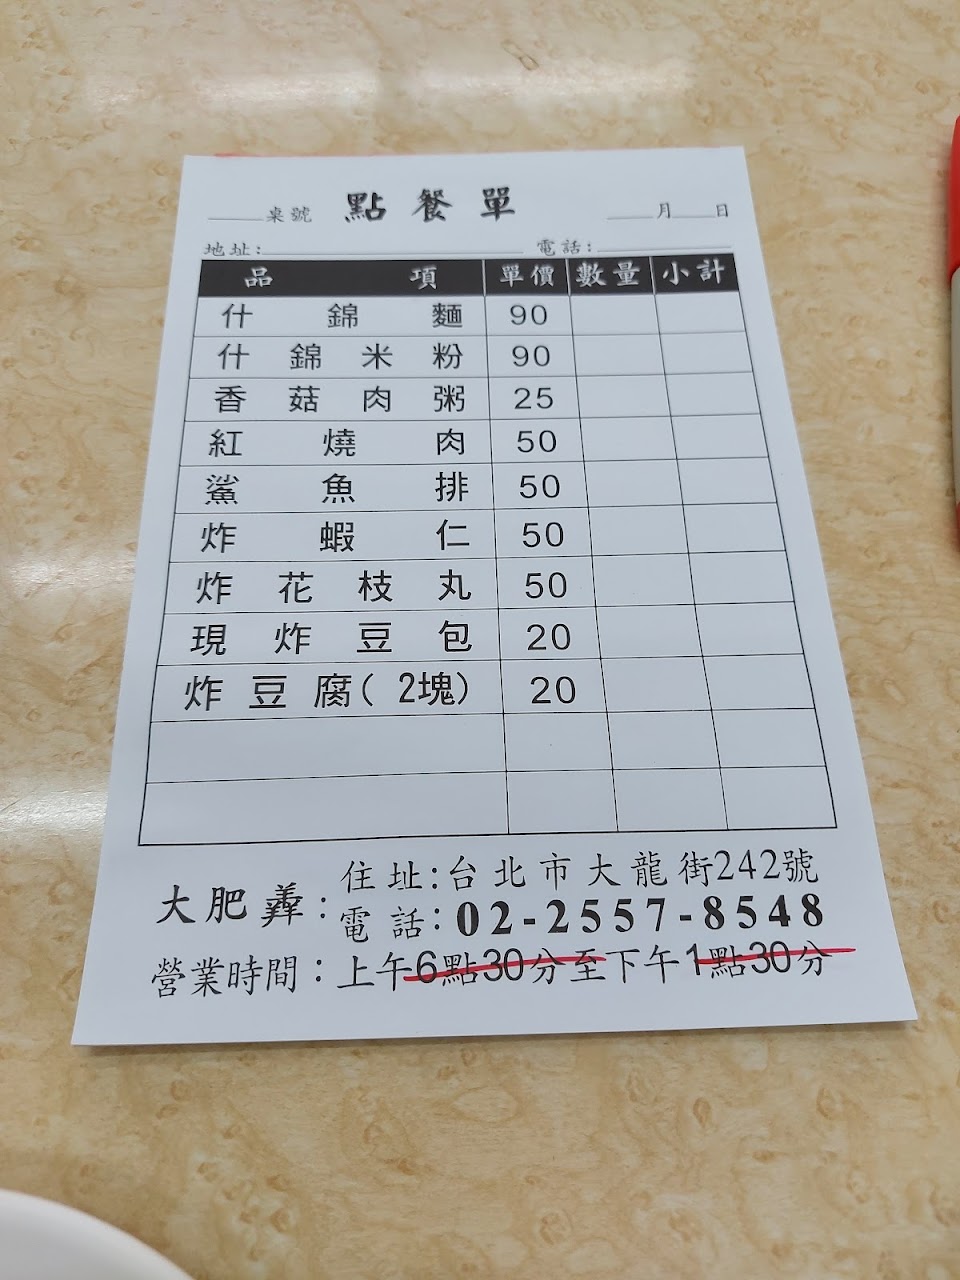 桌號 點餐單 月 日
地址: 電話:
品項 單價 數量 小計
什錦麵 90
什錦米粉 90
香菇肉粥 25
紅燒肉 50
鯊魚排 50
炸蝦仁 50
炸花枝丸 50
現炸豆包 20
炸豆腐(2塊) 20
大肥彝:
住址:台北市大龍街242號
電話:02-2557-8548
營業時間:上午6點30分至下午1點30分